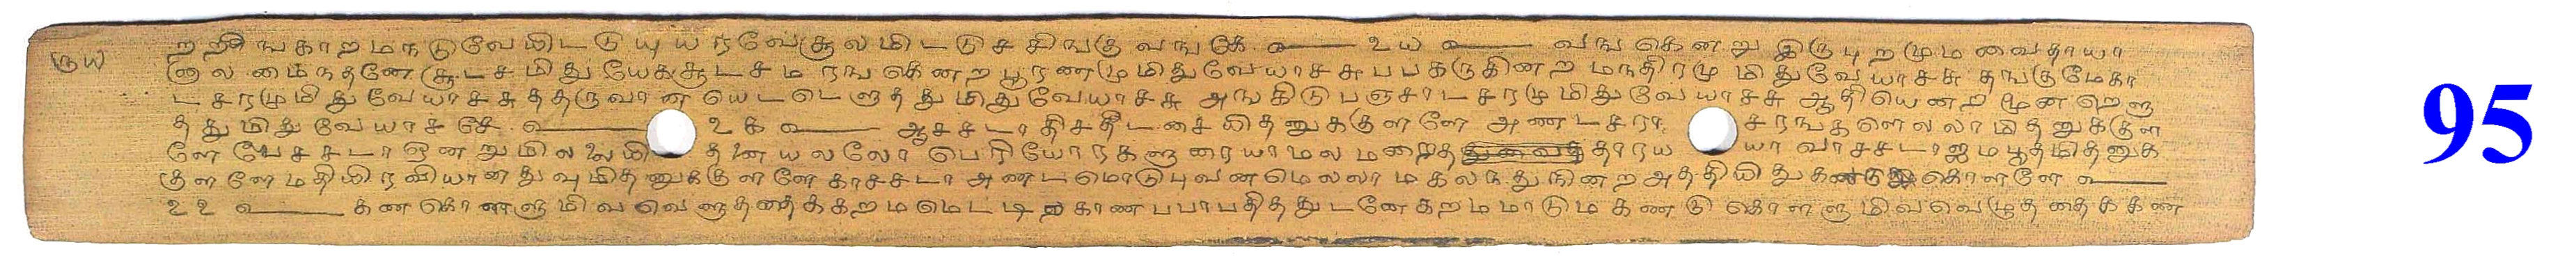 ற றீங காற ம ந டுவே யிட டு யு ய ர வே சூ ல மிட டு ச சிங கு வங கே ௨௰ வங கென று இரு பு ற மு ம வை தா யா
னு ல மைந தனே சூ ட ச மிது யேக சூ ட ச ம ரங கென ற பூ ரண மு மிது வே யா ச சு ப ப க ருகின ற மந திர மு மிது வே யா ச சு தங கு மே கா
ட ச ர மு மிது வே யா ச சு த த ருவான யெட டெ ளு த து மிது வே யா ச சு அங கிடு ப ஞ சா ட ச ர மு மிது வே யா ச சு ஆதி யென ற மூன றெ ளு
த து மிது வே யா ச சே ௨௧ ஆ ச ச டா திசதீட சை யித னுக குள ளே அண ட ச ரா ச ரங க ளெ ல லா மித னுக குள
ளே பே ச ச டா ஒன று மில லை யித னை ய ல லோ பெரி யோ ர க ளு ரை யா ம ல மறைத தார ய யா வா ச ச டா ஐ ம பூ த மித னுக
குள ளே ம தி யி ர வி யான து வு மித னுக குள ளே கா ச ச டா அண ட மொடு புவன மெ ல லா ம க ல ந து நின ற அ த தி யி து கண டு கொள ளே
௨௨ கண கொள ளு மிவ வெ ளு த தைக க ற ம மெட டி ற காண ப பா ப தித து ட னே க ற ம மா டு ம க ண டு கொள ளு மிவ வெழு த தை க கண
95